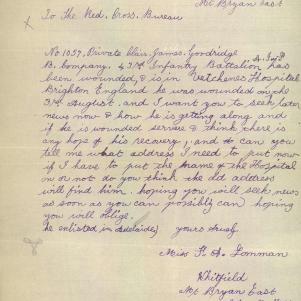 Mt Bryan East
To The Red. Cross. Bureau
No 1057. Private Clair. James. Goodridge
B. Company. 43rd Infantry Battalion A.I.F
has been wounded, & is in Hospital
Brighton England he was wounded on the
31st August. and I want you to seek later
news now & how he is getting along and
if he is wounded serious & think there is
any hope of his recovery, and can you
tell me what address I need to put now
if I have to put the name of the Hospital
on or not do you think the old address
will find him. hoping you will seek news
as soon as you can possibly can hoping
you will oblige.
he enlisted in Adelaide) yours truly.
Miss F. A. Gomman
Whitfield
Mt Bryan East